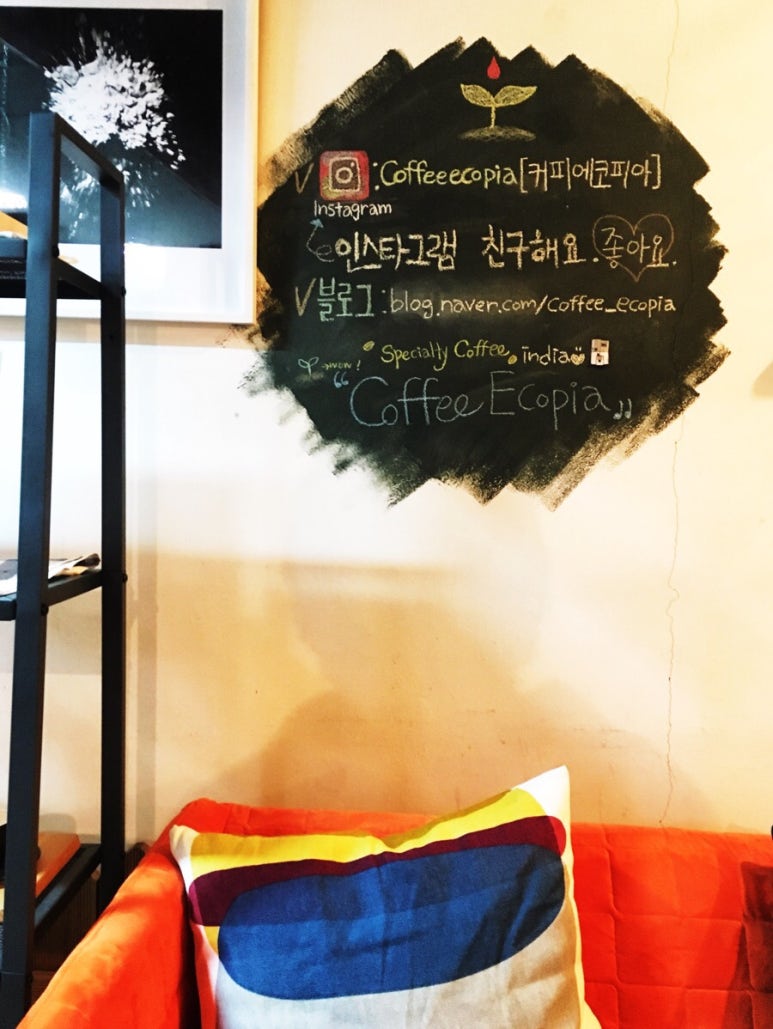 V :Coffeeecopia[커피에코피아]
Instagram
인스타그램 친구해요. 좋아요.
V블로그:blog.naver.com/coffee_ecopia
→wow! Specialty Coffee. india
“ Coffee Ecopia ♫